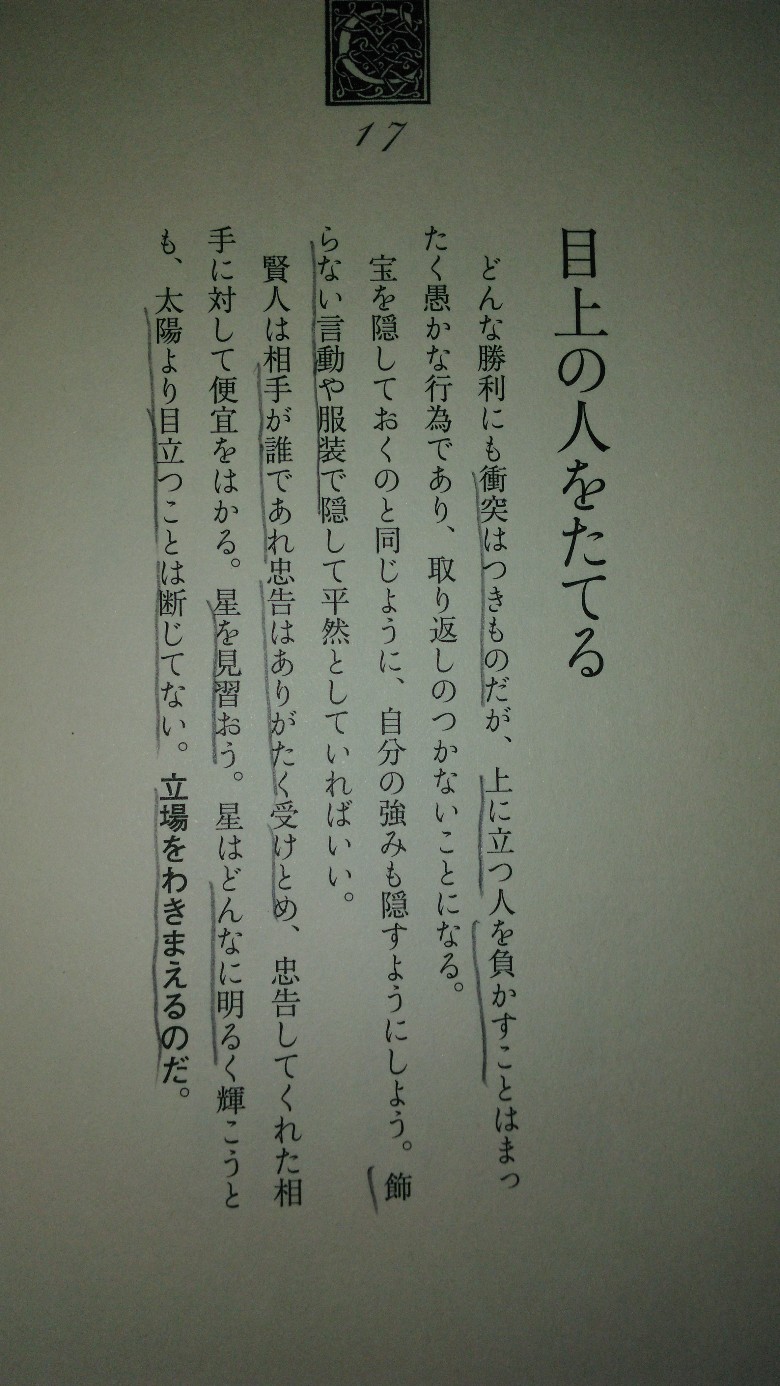 17
目上の人をたてる
どんな勝利にも衝突はつきものだが、上に立つ人を負かすことはまっ
たく愚かな行為であり、取り返しのつかないことになる。
宝を隠しておくのと同じように、自分の強みも隠すようにしよう。飾
らない言動や服装で隠して平然としていればいい。
賢人は相手が誰であれ忠告はありがたく受けとめ、忠告してくれた相
手に対して便宜をはかる。星を見習おう。星はどんなに明るく輝こうと
も、太陽より目立つことは断じてない。立場をわきまえるのだ。